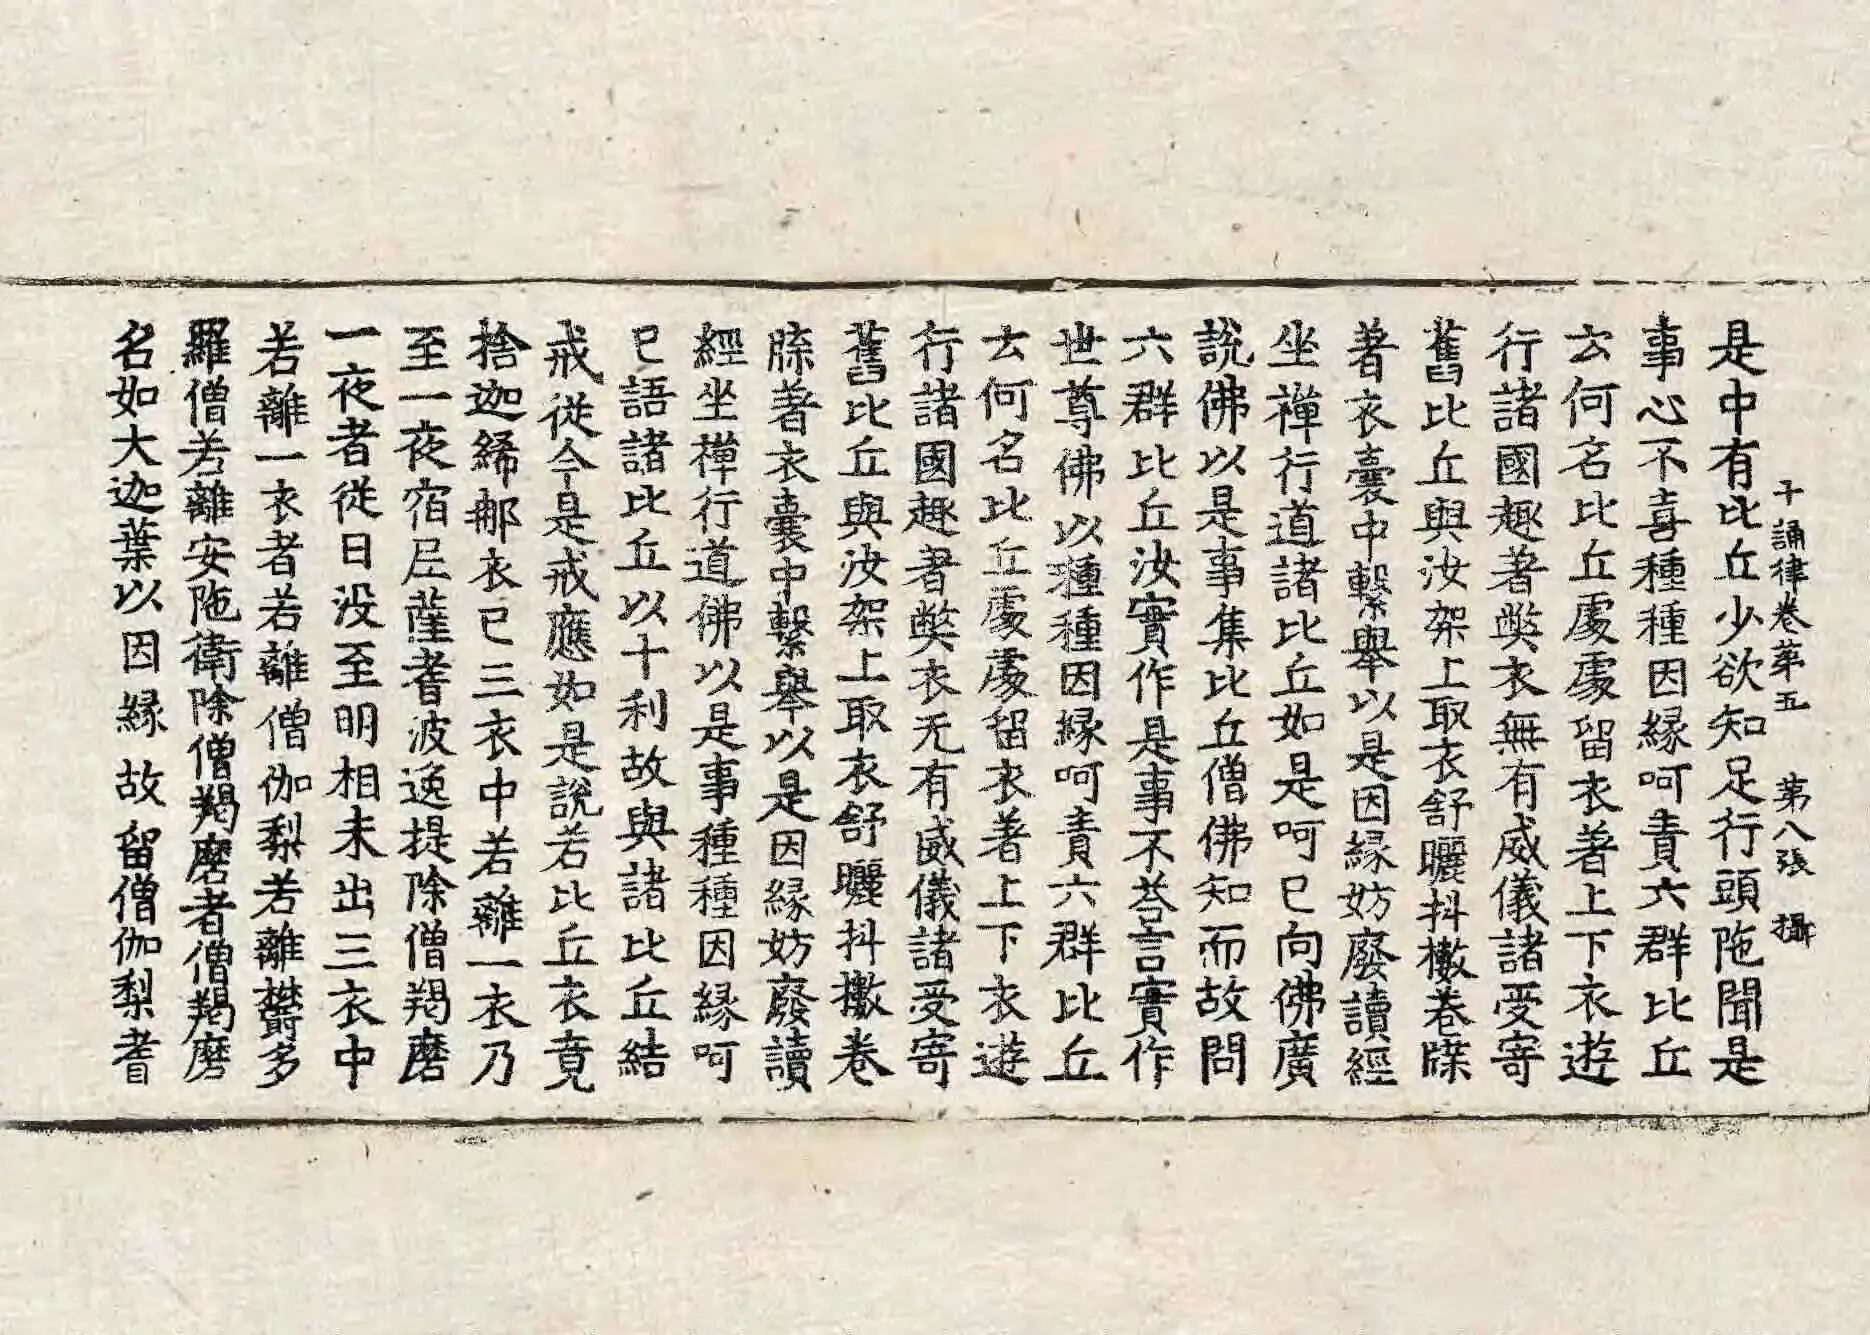 十誦律卷第五　第八張　攝
是中有比丘少欲知足行頭陁聞是
事心不喜種種因縁呵責六群比丘
云何名比丘處處留衣著上下衣遊
行諸國趣著弊衣無有威儀諸受寄
舊比丘與汝架上取衣舒曬抖擻卷𤗉
著衣囊中繫舉以是因縁妨廢讀經
坐禪行道諸比丘如是呵已向佛廣
說佛以是事集比丘僧佛知而故問
六群比丘汝實作是事不荅言實作
世尊佛以種種因縁呵責六群比丘
云何名比丘處處留衣著上下衣遊
行諸國趣著弊衣无有威儀諸受寄
舊比丘與汝架上取衣舒曬抖擻卷
𤗉著衣囊中繫舉以是因縁妨廢讀
經坐禪行道佛以是事種種因縁呵
已語諸比丘以十利故與諸比丘結
戒從今是戒應如是說若比丘衣竟
捨迦絺那衣已三衣中若離一衣乃
至一夜宿尼薩耆波逸提除僧羯磨
一夜者從日没至明相未出三衣中
若離一衣者若離僧伽梨若離欝多
羅僧若離安陁衛除僧羯磨者僧羯磨
名如大迦葉以因縁故留僧伽梨耆